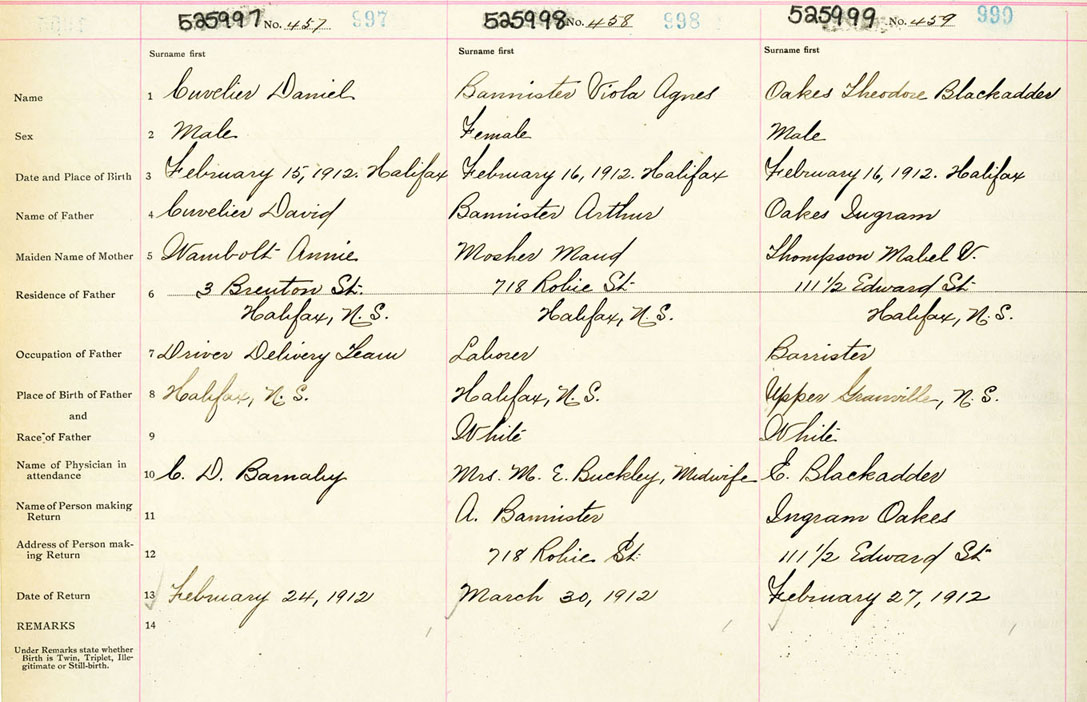 525997 No. 457 997 525998 No. 458 998 525999 No. 459 999
Surname first Surname first Surname first
Name 1 Cuvelier Daniel Bannister Viola Agnes Oakes Theodore Blackadder
Sex 2 Male Female Male
Date and Place of Birth 3 February 15, 1912. Halifax February 16, 1912. Halifax February 16, 1912. Halifax
Name of Father 4 Cuvelier David Bannister Arthur Oakes Ingram
Maiden Name of Mother 5 Wambolt Annie Mosher Maud Thompson Mabel V.
Residence of Father 6 3 Brenton St. 718 Robie St. 111 1/2 Edward St.
Halifax, N.S. Halifax, N.S. Halifax, N.S.
Occupation of Father 7 Driver Delivery Team Laborer Barrister
Place of Birth of Father 8 Halifax, N.S. Halifax, N.S. Upper Granville, N.S.
and
Race of Father 9 White White
Name of Physician in
attendance 10 C. D. Barnaby Mrs. M. E. Buckley, Midwife E. Blackadder
Name of Person making
Return 11 A. Bannister Ingram Oakes
Address of Person mak-
ing Return 12 718 Robie St. 111 1/2 Edward St.
Date of Return 13 February 24, 1912 March 30, 1912 February 27, 1912
REMARKS 14
Under Remarks state whether
Birth is Twin, Triplet, Ille-
gitimate or Still-birth.